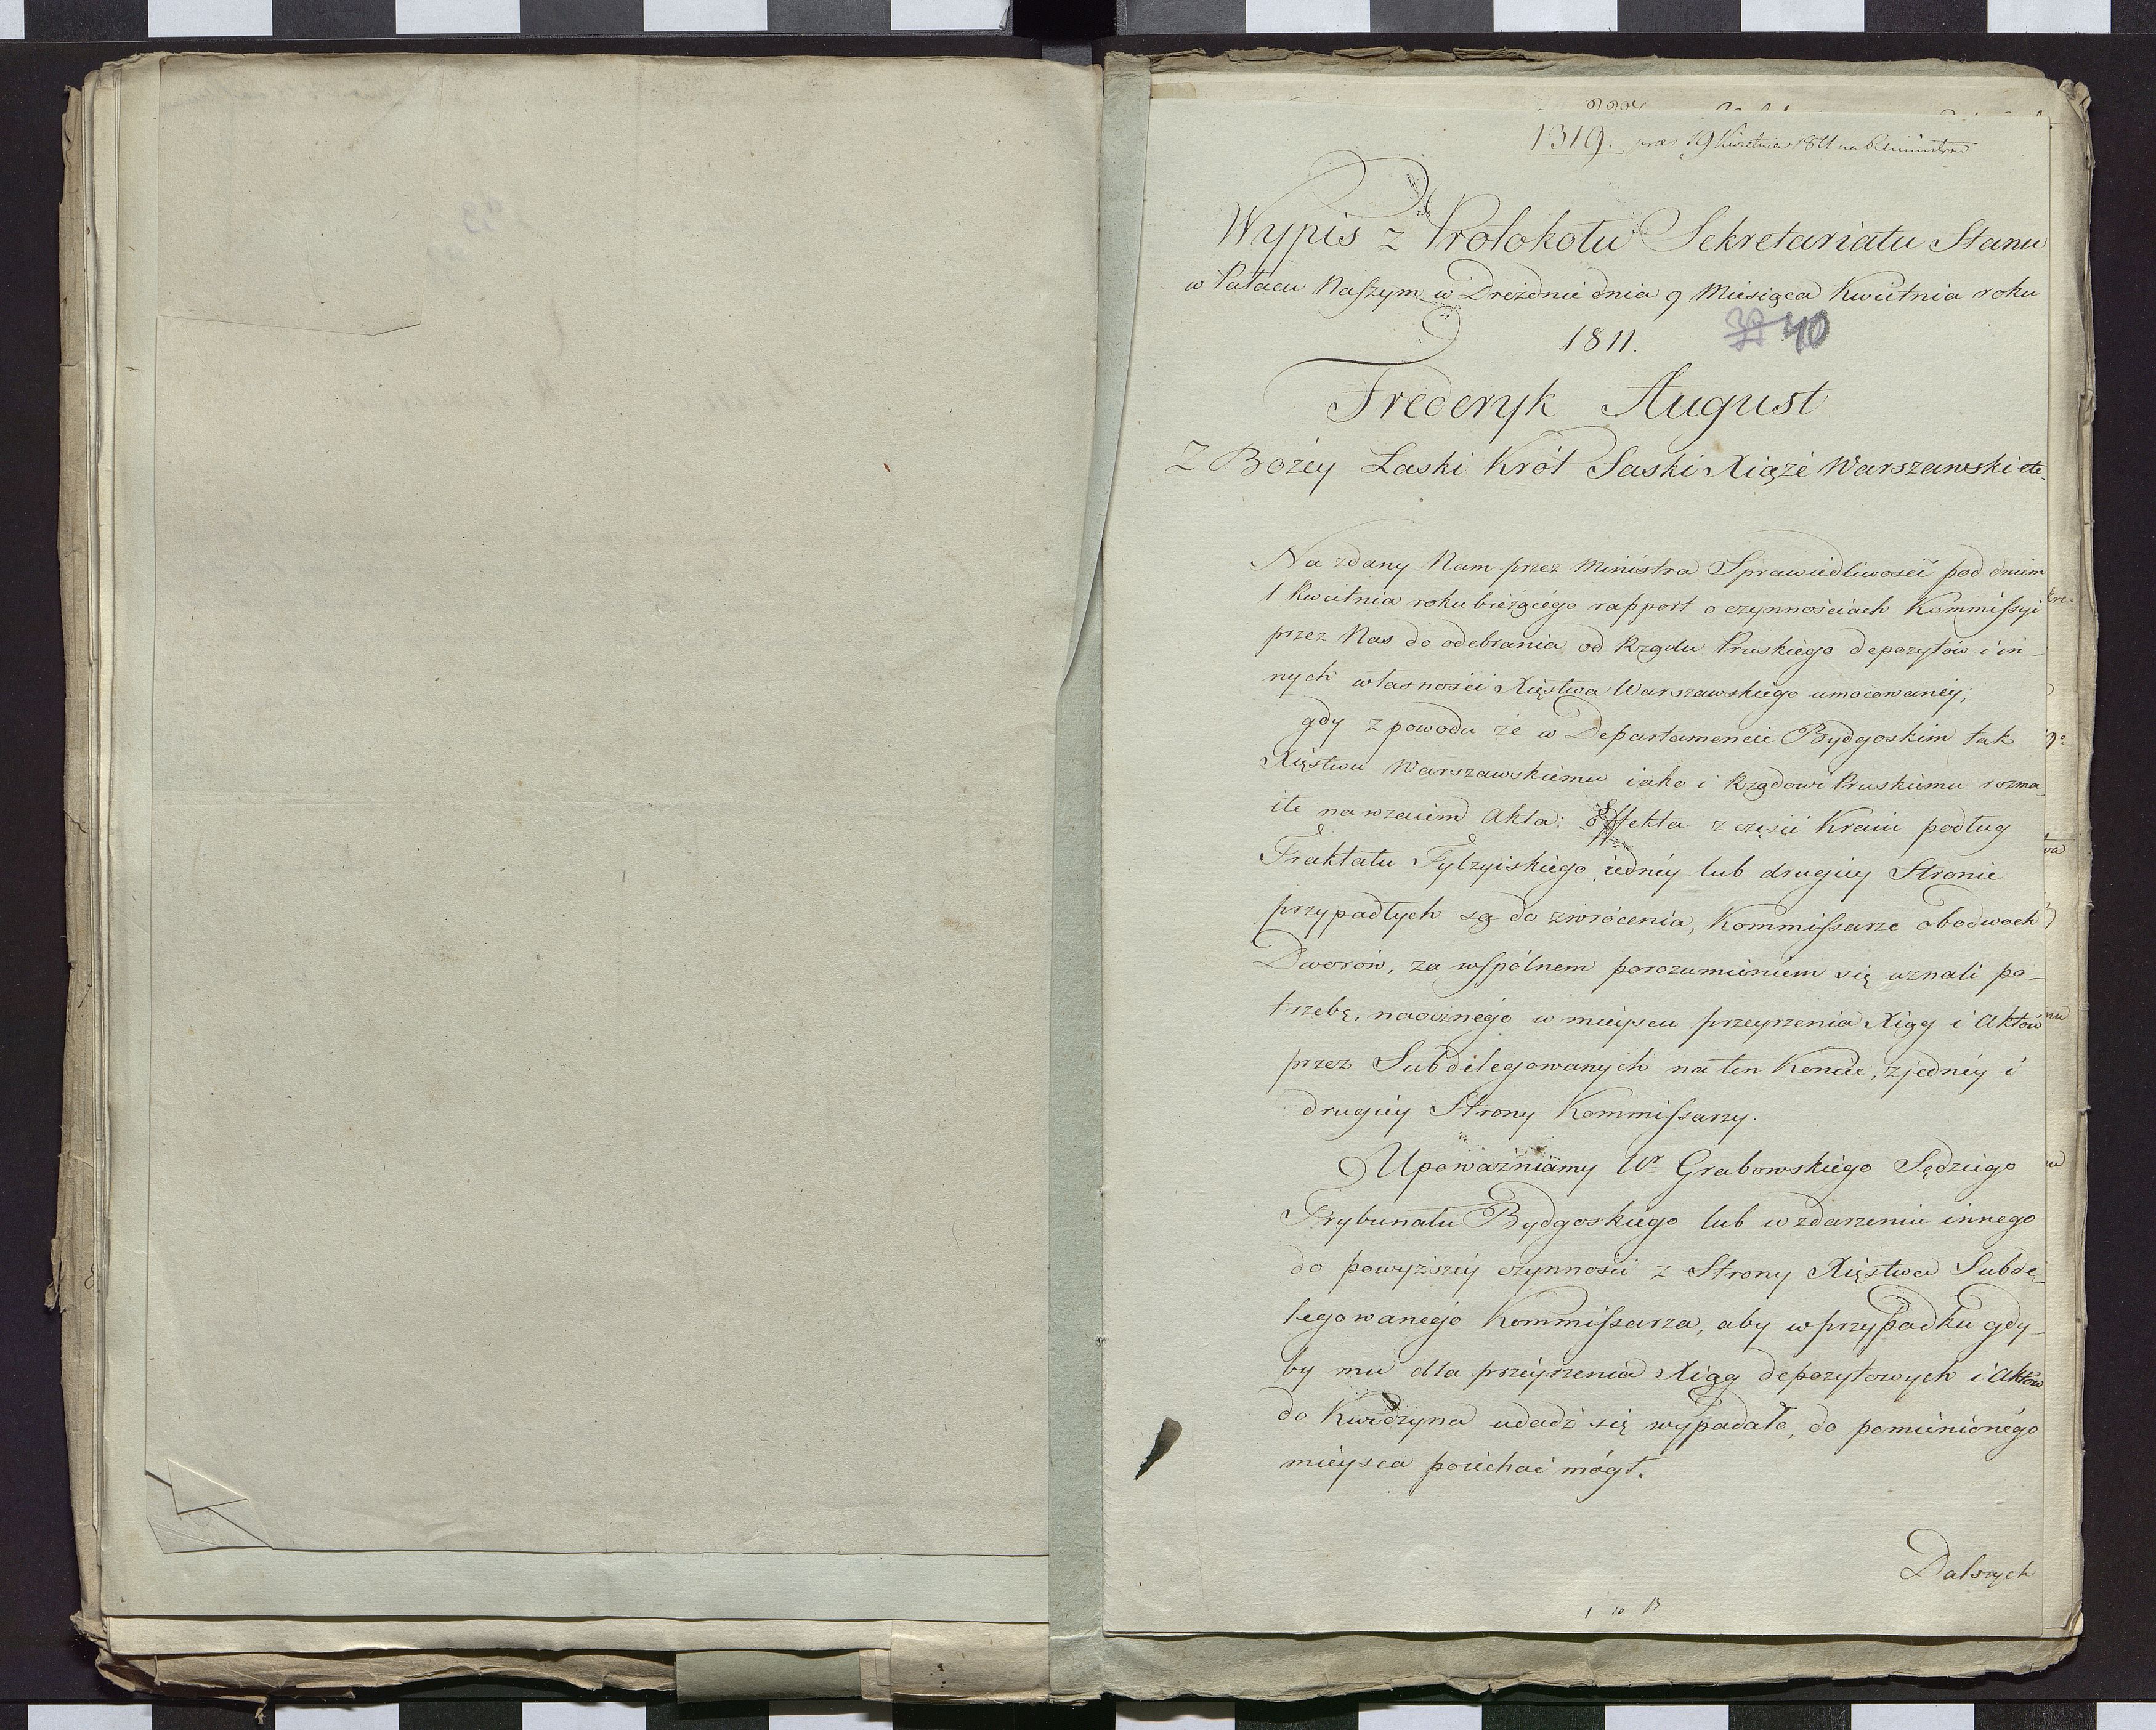 1319. prez 19 Kwietnia 1811
Wypis z Protokołu Sekretariatu Stanu
w Pałacu Naſzym w Dreźdnie dnia 9 Miesiąca Kwietnia roku
1811.
39 40
Frederyk August
Z Bożéy Łaski Król Saski Xiąże Warszawski etc.
Na zdany Nam przez Ministra Sprawiedliwości pod dniem
1 Kwietnia roku bieżącégo rapport o czynnościach Kommiſsyi
przez Nas do odebrania od Rządu Pruskiego depozytów i in-
nych własności Xięstwa Warszawskiego umocowanéy;
gdy z powodu że w Departamencie Bydgoskim tak
Xięstwu Warszawskiemu iako i Rządowi Pruskiemu rozma-
ite nawzaiem Akta: Effekta z części Kraiu podług
Traktatu Tylżyiskiego iednéy lub drugiey Stronie
przypadłych są do zwrócenia, Kommiſsarze obodwoch
Dworów, za wſpólnem porozumieniem się uznali po-
trzebę, naocznego w mieyscu przeyrzenia Xiąg i Aktów
przez Subdelegowanych na ten Koniec, z jednéy i
drugiéy Strony Kommiſsarzy.
Upoważniamy Ur Grabowskiego Sędziego
Trybunału Bydgoskiego lub w zdarzeniu innego
do powyższéy czynności z Strony Xięstwa Subde-
legowanégo Kommiſsarza, aby w przypadku gdy-
by mu dla przeyrzenia Xiąg depozytowych i Aktów
do Kwidzyna udadź się wypadało, do pomienionégo
mieysca poiechać mógł.
Dalszych